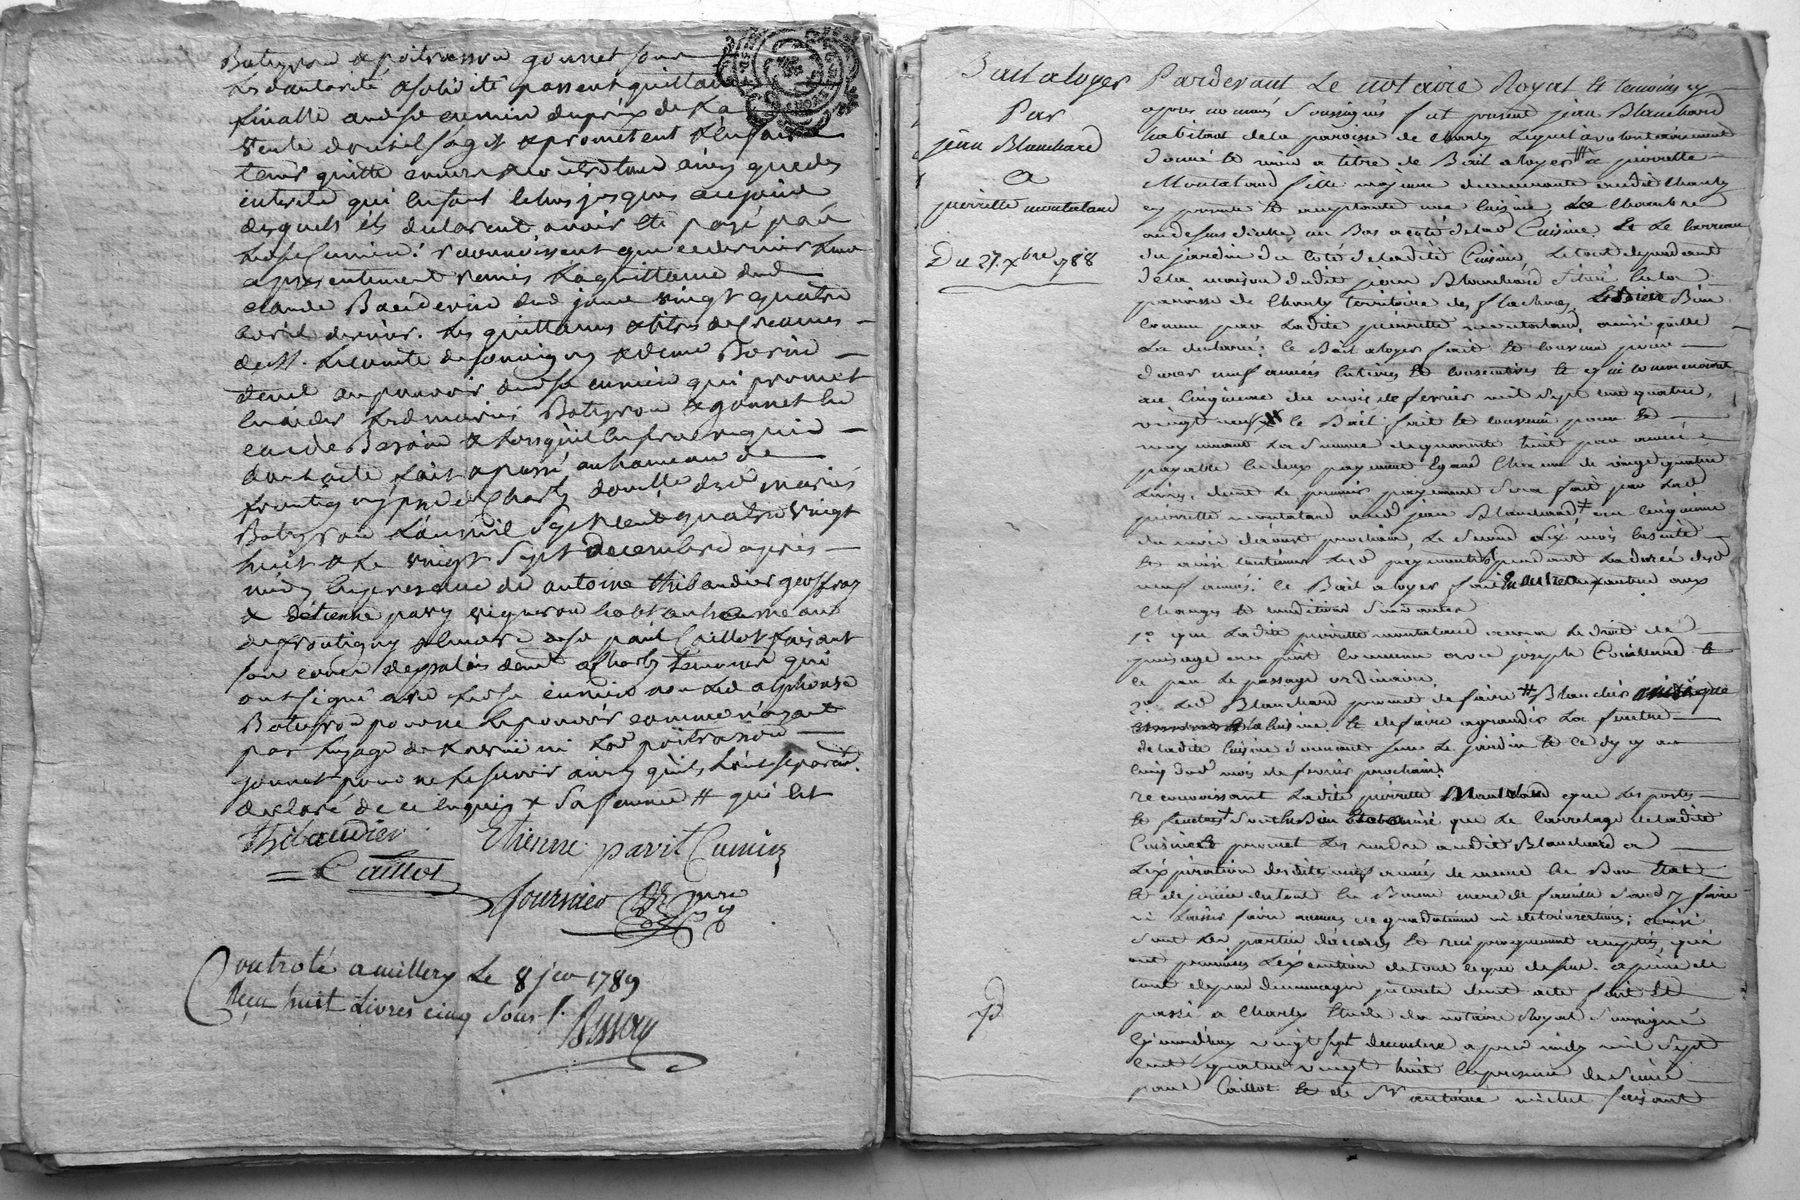 Batyron & poitrasson gonnet sous
Les d autorité & solidité passent quittance
finalle audse cumin du prix de La
vente dont il s'agit & prometent L'en faire
tenir quitte envers & contre tous ainsy que des
interets qui en sont echus jusques a ce jour
desquels ils déclarent avoir été payé par
Led se cumin: reconnoissent que ce dernier Leur a
a presentement remis La quittance dud
claude Bauderin du d jour vingt quatre
avril dernier. Les quittances & titres de creances
de M. Le comte de
demeurent au pouvoir dud se cumin qui promet
en aider Led mariés Batyron & gonnet en
cas de Besoin & Lorsqu'il en sera requis
dont acte fait & passé au hameau de
frontigny psse de Charly domicile des d mariés
Batyron L'an mil sept cent quatre vingt
huit & Le vingt sept decembre après
midy en presence de antoine thibaudier geoffray
& d'etienne pavy vigneron habt au hameau
de frontigny & encore de se paul Caillot faisant
son cours de pratis demt a Charly temoins qui
ont signé avec Led se cumin non Led alphonse
Batyron pour ne le pouvoir comme n'ayant
pas L'usage de La main ni Lad poitrasson
gonnet pour ne Le savoir ainsy qu'ils L'ont separemt
declaré de ce enquis & sa femme # qui est
Thibaudier Etienne pavit Cumin
Caillot
fournier
Controlé a millery Le 8 jer 1789
Reçu huit Livres cinq sous
Bail a loyer
Par
jean Blanchard
a
pierrette montaland
Du 27. Xbre 1788
Pardevant Le notaire Royal et temoins cy
apres nommés soussignés fut present jean Blanchard
habitant de la paroisse de Charly Lequel a volontairement
donné et remis a titre de Bail a loyer # à pierrette
Montaland fille majeure demeurante audit Charly
cy presente et acceptante une Cuisine, La Chambre
au dessus d'icelle, un Bas a coté de lad Cuisine et Le Carreau
du jardin du coté de ladite Cuisine, Le tout dependant
de la maison dudit jean Blanchard située en lad
paroisse de Charly territoire des flaches, Bien
connu par Ladite pierrette montaland, ainsi qu'elle
La declaré; ce Bail a loyer fait et convenu pour
durer neuf années entieres et consecutives et qui commenceront
au cinquieme du mois de fevrier mil sept cent quatre
vingt neuf le Bail fait et convenu pour et
moyennant La somme de quarante huit par année
payable en deux payement Egaux Chacun de vingt quatre
Livres, dont Le premier payement sera fait par Lad
pierrette montaland aud jean Blanchard # au cinquieme
du mois d'aoust prochain, Le second six mois ensuite
et ainsi continuer Les d payements pendant La durée desd
neuf années: ce Bail a loyer fait en outre aux
Charges et conditions suivantes
1° que Ladite pierrette montaland aura Le droit de
puisage au puit Commun avec joseph et
ce par Le passage ordinaire
2° Led Blanchard promet de faire # Blanchir
la cuisine et de faire agrandir La fenetre
de ladite Cuisine donnant sur Le jardin et ce d'ici au
cinq dud mois de fevrier prochain.
reconnoissant Ladite pierrette Montaland que Les portes
et fenetres sont en Bon Etat ainsi que Le Carrelage de ladite
Cuisine et promet Les rendre audit Blanchard a
L'expiration desdites neuf années de meme en Bon Etat
et de jouir du tout en Bonne mere de famille sans d'y faire
ni Laisser faire aucunes degradations ni deteriorations; ainsi
sont Les parties d'accord et reciproquement acceptés, qui
ont promises L'execution de tout ce que dessus a peine de
tous depens dommages interets dont acte fait et
passé a Charly Etude du notaire Royal soussigné
Cejourd'huy vingt sept decembre apres midy mil sept
cent quatre vingt huit en presence de sieur
paul Caillot et de Sr antoine michel faisant